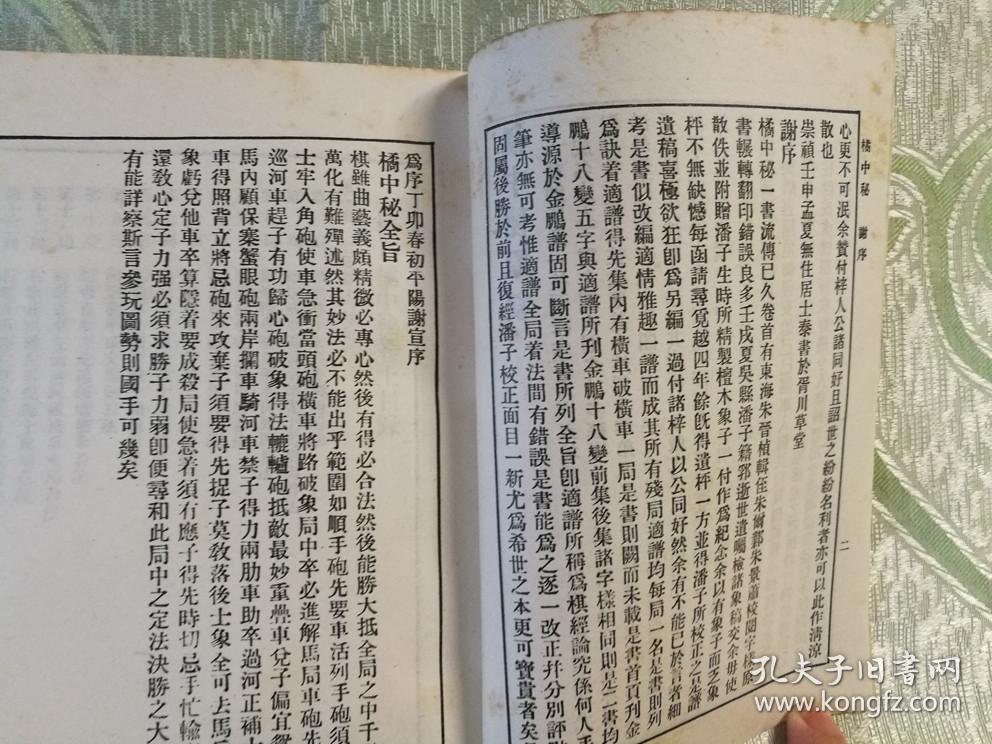 橘中秘 謝序 二
心更不可泯余贊付梓人公諸同好且詔世之紛紛名利者亦可以此作淸涼
散也
崇禎壬申孟夏無住居士泰書於胥川草堂
謝序
橘中秘一書流傳已久卷首有東海朱晉楨輯侄朱爾鄴朱景蕭校閱字樣原
書輾轉翻印錯誤良多壬戌夏吳縣潘子籍郛逝世遺囑檢諸象稿交余毋使
散佚並附贈潘子生時所精製檀木象子一付作爲紀念余以有象子而乏象
枰不無缺憾每函請尋覓越四年餘旣得遺枰一方並得潘子所校正之是譜
遺稿喜極欲狂卽爲另編一過付諸梓人以公同好然余有不能已於言者細
考是書似改編適情雅趣一譜而成其所有殘局適譜均每局一名是書則列
爲訣着適譜得先集內有橫車破橫車一局是書則闕而未載是書首頁刊金
鵬十八變五字與適譜所刊金鵬十八變前集後集諸字樣相同則是二書均
導源於金鵬譜固可斷言是書所列全旨卽適譜所稱爲棋經論究係何人手
筆亦無可考惟適譜全局着法間有錯誤是書能爲之逐一改正幷分別評
固屬後勝於前且復經潘子校正面目一新尤爲希世之本更可寶貴者矣
爲序丁卯春初平陽謝宣序
橘中秘全旨
棋雖曲藝義頗精微必專心然後有得必合法然後能勝大抵全局之中千
萬化有難殫述然其妙法必不能出乎範圍如順手砲先要車活列手砲須
士牢入角砲使車急衝當頭砲橫車將路破象局中卒必進解馬局車砲先
巡河車趕子有功歸心砲破象得法轆轤砲抵敵最妙重疊車兌子偏宜
馬內顧保寨蟹眼砲兩岸攔車騎河車禁子得力兩肋車助卒過河正補
車得照背立將忌砲來攻棄子須要得先捉子莫敎落後士象全可去馬
象虧兌他車卒算隱着要成殺局使急着須有應子得先時切忌手忙輸
還敎心定子力强必須求勝子力弱卽便尋和此局中之定法決勝之大
有能詳察斯言參玩圖勢則國手可幾矣
孔夫子旧書网
www.kongfz.com